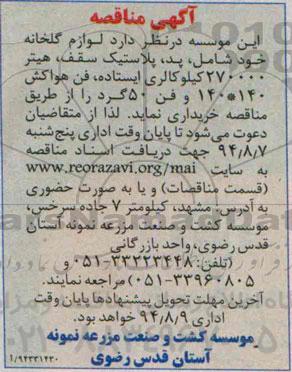 آگهی مناقصه
این موسسه درنظر دارد لوازم گلخانه
خود شامل، پد، پلاستیک سقف، هیتر
۲۷۰۰۰۰کیلوکالری ایستاده، فن هواکش
۱۴۰*۱۴۰ و فن ۵۰گرد را از طریق
مناقصه خریداری نماید. لذا از متقاضیان
دعوت می‌شود تا پایان وقت اداری پنج‌شنبه
۹۴/۸/۷ جهت دریافت اسناد مناقصه
به سایت www.reorazavi.org/mai
(قسمت مناقصات) و یا به صورت حضوری
به آدرس: مشهد، کیلومتر ۷ جاده سرخس،
موسسه کشت و صنعت مزرعه نمونه آستان
قدس رضوی، واحد بازرگانی
(تلفن: ۳۳۲۲۳۴۴۸-۰۵۱ و
۳۳۹۶۰۸۰۵-۰۵۱) مراجعه نمایند.
آخرین مهلت تحویل پیشنهادها پایان وقت
اداری ۹۴/۸/۹ خواهد بود.
موسسه کشت و صنعت مزرعه نمونه
آستان قدس رضوی
۱/۹۴۳۳۱۴۳۰